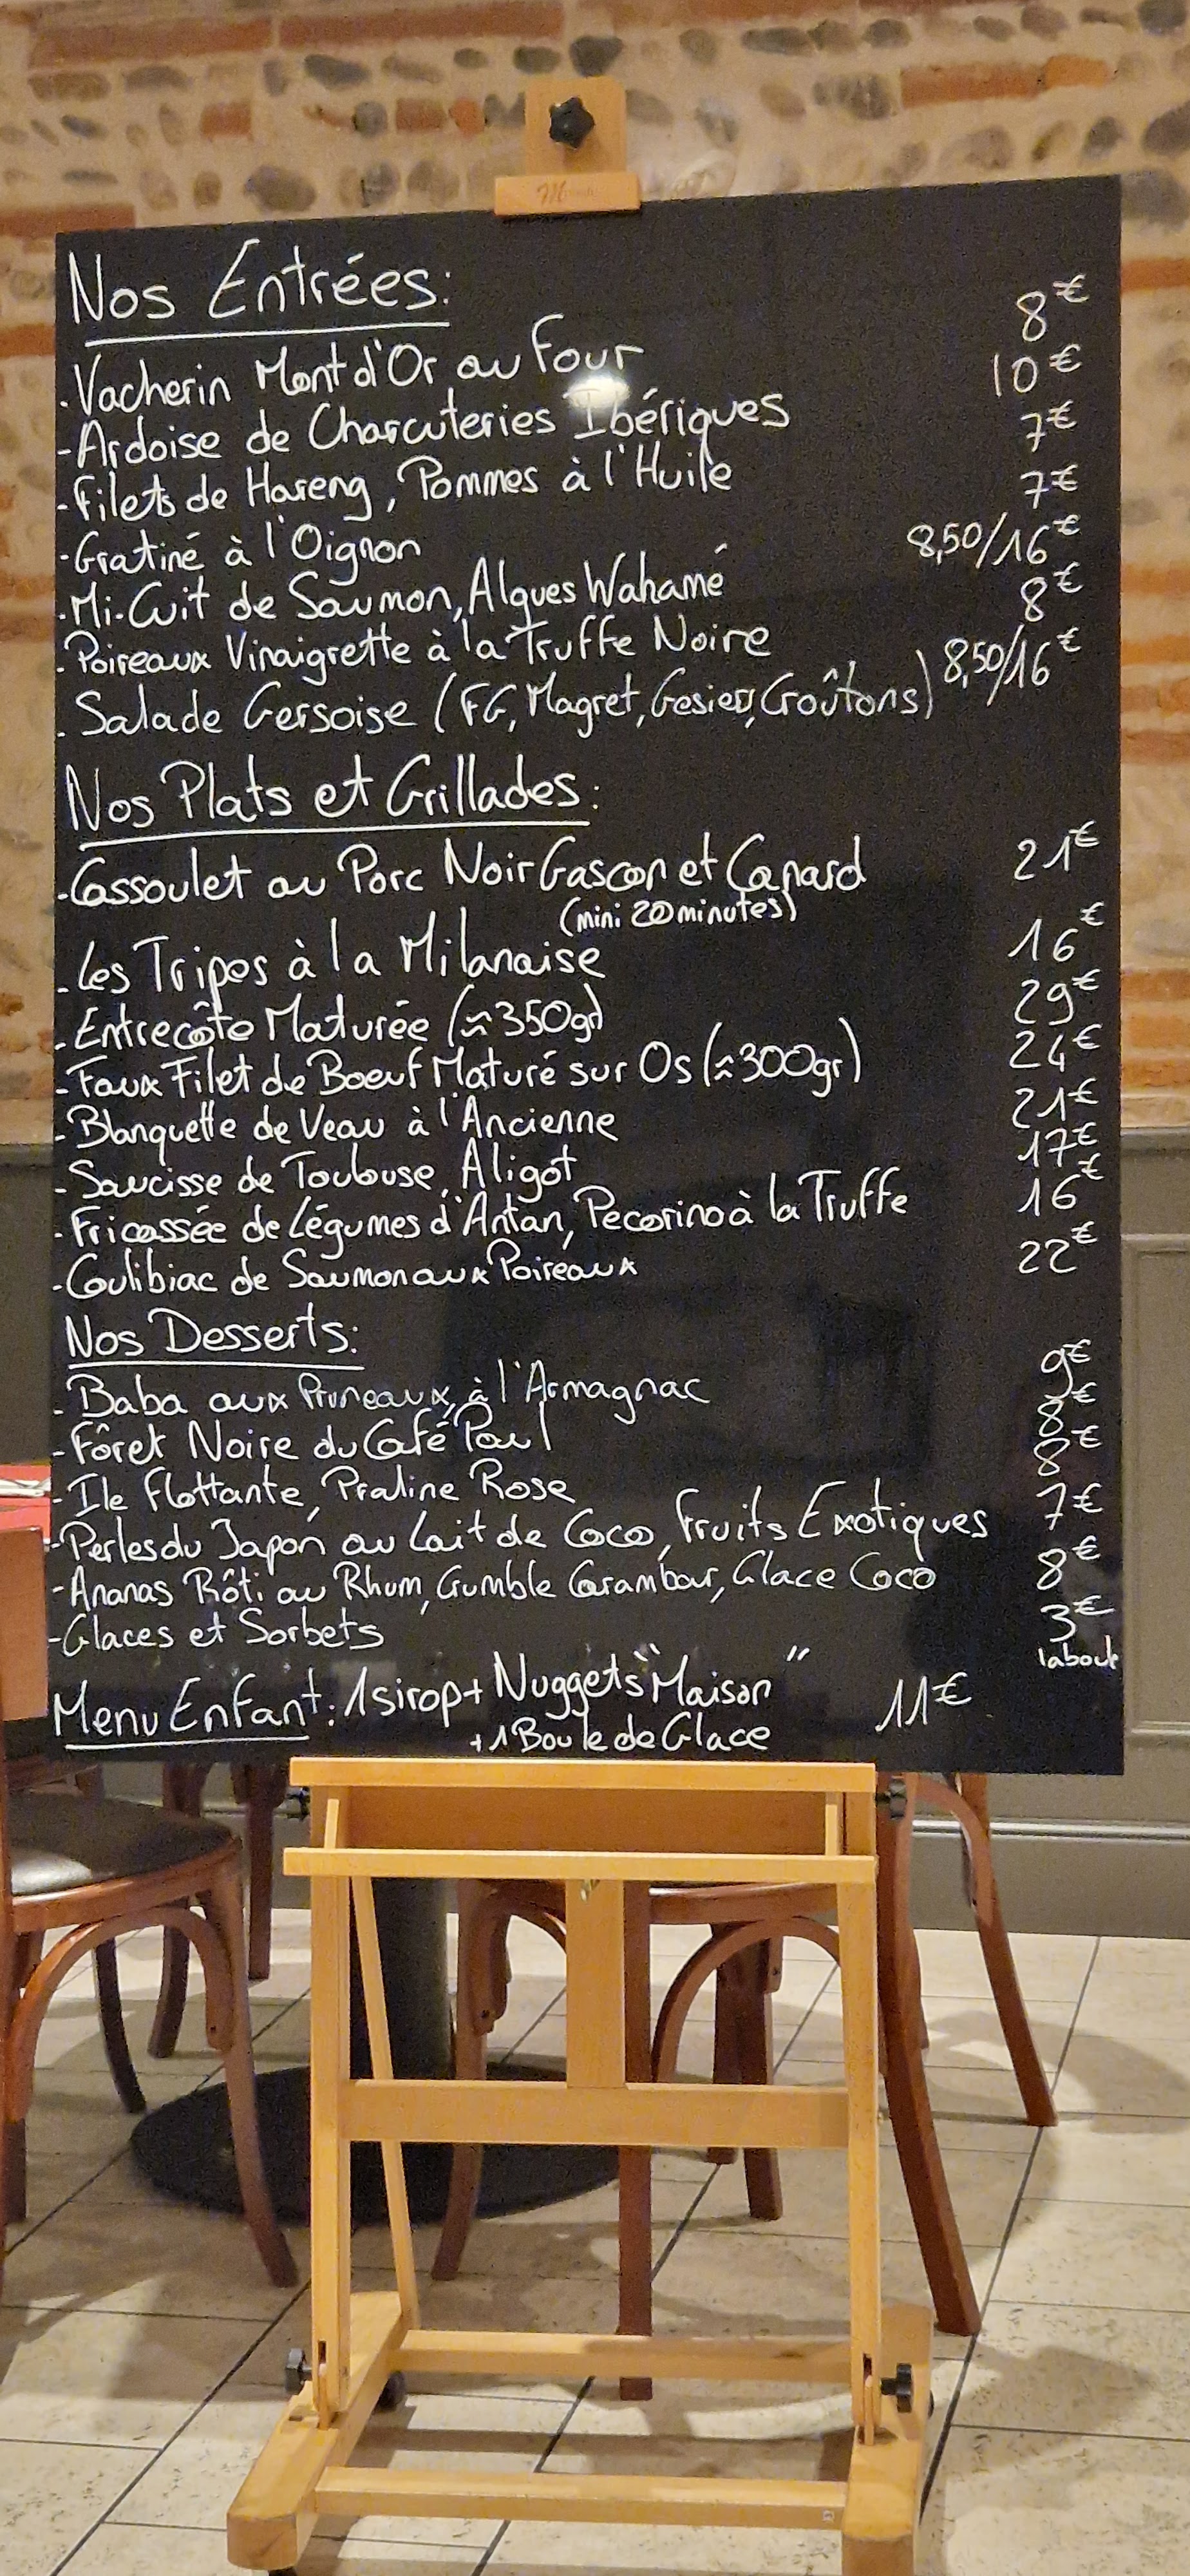 Nos Entrées:
. Vacherin Mont d'Or au Four 8€
- Ardoise de Charcuteries Ibériques 10€
- Filets de Hareng, Pommes à l'Huile 7€
- Gratiné à l'Oignon 7€
. Mi-Cuit de Saumon, Algues Wahamé 8,50/16€
. Poireaux Vinaigrette à la Truffe Noire 8€
. Salade Gersoise (FG, Magret, Gesiers, Croûtons) 8,50/16€
Nos Plats et Grillades:
- Cassoulet au Porc Noir Gascon et Canard 21€
(mini 20 minutes)
. Les Tripes à la Milanaise 16€
. Entrecôte Maturée (≈350gr) 29€
- Faux Filet de Boeuf Maturé sur Os (≈300gr) 24€
- Blanquette de Veau à l'Ancienne 21€
- Saucisse de Toulouse, Aligot 17€
- Fricassée de Légumes d'Antan, Pecorino à la Truffe 16€
- Coulibiac de Saumon aux Poireaux 22€
Nos Desserts:
- Baba aux Pruneaux, à l'Armagnac 9€
- Fôret Noire du Café "Paul 8€
- Ile Flottante, Praline Rose 8€
- Perles du Japon au Lait de Coco, Fruits Exotiques 7€
- Ananas Rôti au Rhum, Gumble Carambar, Glace Coco 8€
- Glaces et Sorbets 3€
la boule
Menu Enfant: 1 sirop + Nuggets "Maison" 11€
+ 1 Boule de Glace